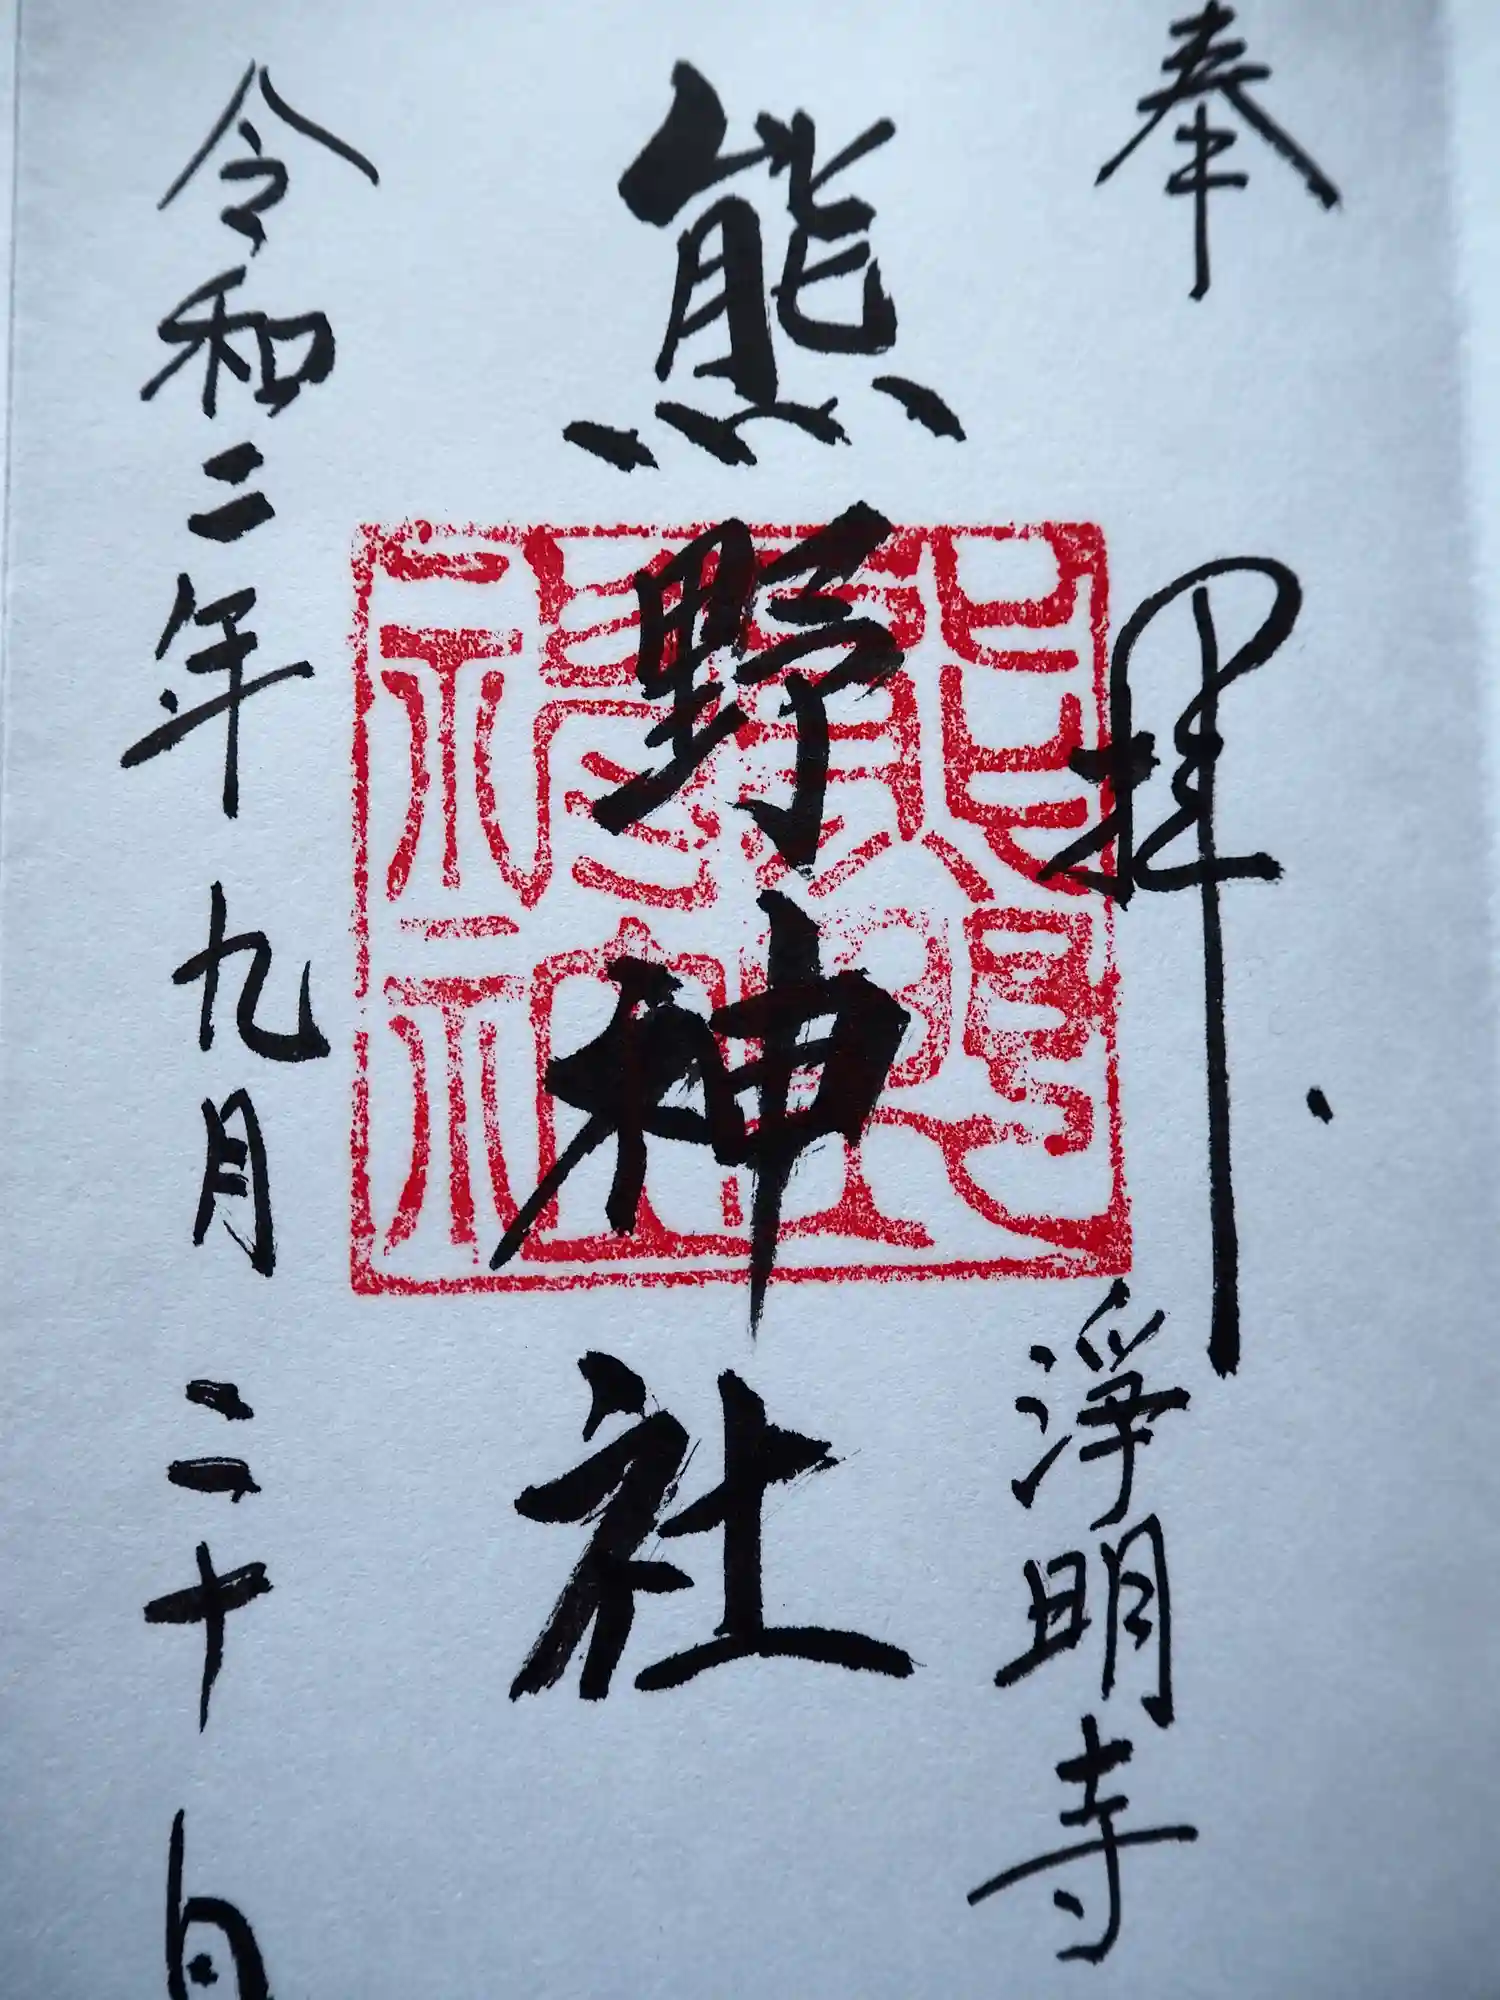 奉拝
淨明寺
熊野神社
令和二年九月二十日
熊野
神社